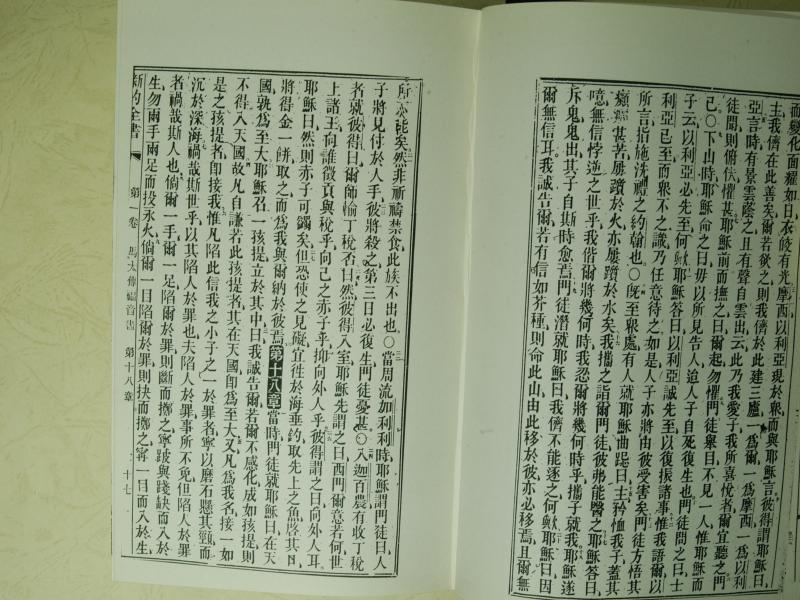 而變化面耀如日衣皎有光摩西以利亞現於眾而與耶穌言彼得謂耶穌曰
主我儕在此善矣爾若欲之則我儕於此建三廬一為爾一為摩西一為以利
亞言時有景雲蔭之且有聲自雲出云此乃我愛子我所喜悅者爾宜聽之門
徒聞則俯伏懼甚耶穌前而撫之曰爾起勿懼門徒舉目不見一人惟耶穌而
已○下山時耶穌命之曰毋以所見告人迨人子自死復生也門徒問之曰士
子云以利亞必先至何歟耶穌答曰以利亞誠先至以復振諸事惟我語爾以
利亞已至而眾不之識乃任意待之如是人子亦將由彼受害矣門徒方悟其
所言指施洗禮之約翰也○既至眾處有人就耶穌曲跽曰主矜恤我子蓋其
癲甚苦屢躓於火亦屢躓於水矣我攜之詣爾門徒彼弗能醫之耶穌答曰
噫無信悖逆之世乎我偕爾將幾何時我忍爾將幾何時乎攜子就我耶穌遂
斥鬼鬼出其子自斯時愈焉門徒潛就耶穌曰我儕不能逐之何歟耶穌曰因
爾無信耳我誠告爾若有信如芥種則命此山由此移於彼亦必移焉且爾無
所不能矣然非祈禱禁食此族不出也○當周流加利利時耶穌謂門徒曰人
子將見付於人手彼將殺之第三日必復生門徒憂甚○入迦百農有收丁稅
者就彼得曰爾師輸丁稅否曰然彼得入室耶穌先謂之曰西門爾意若何世
上諸王向誰徵貢與稅乎向己之赤子乎抑向外人乎彼得謂之曰向外人耳
耶穌曰然則赤子可獨矣但恐使之見礙宜往於海垂釣取先上之魚啟其口
將得金一餅取之而為我與爾納於彼焉第十八章當時門徒就耶穌曰在天
國孰為至大耶穌召一孩提立於其中曰我誠告爾若爾不感化成如孩提則
不得入天國故凡自謙若此孩提者其在天國即為至大又凡為我名接一如
是之孩提者即接我惟凡陷此信我之小子之一於罪者寧以磨石懸其頸而
沉於深海禍哉斯世乎以其陷人於罪也夫陷人於罪事所不免但陷人於罪
者禍哉斯人也倘爾一手爾一足陷爾於罪則斷而擲之寧跛與殘缺而入於
生勿兩手兩足而投永火倘爾一目陷爾於罪則抉而擲之寧一目而入於生
新約全書 第一卷 馬太傳福音書 第十八章 十七